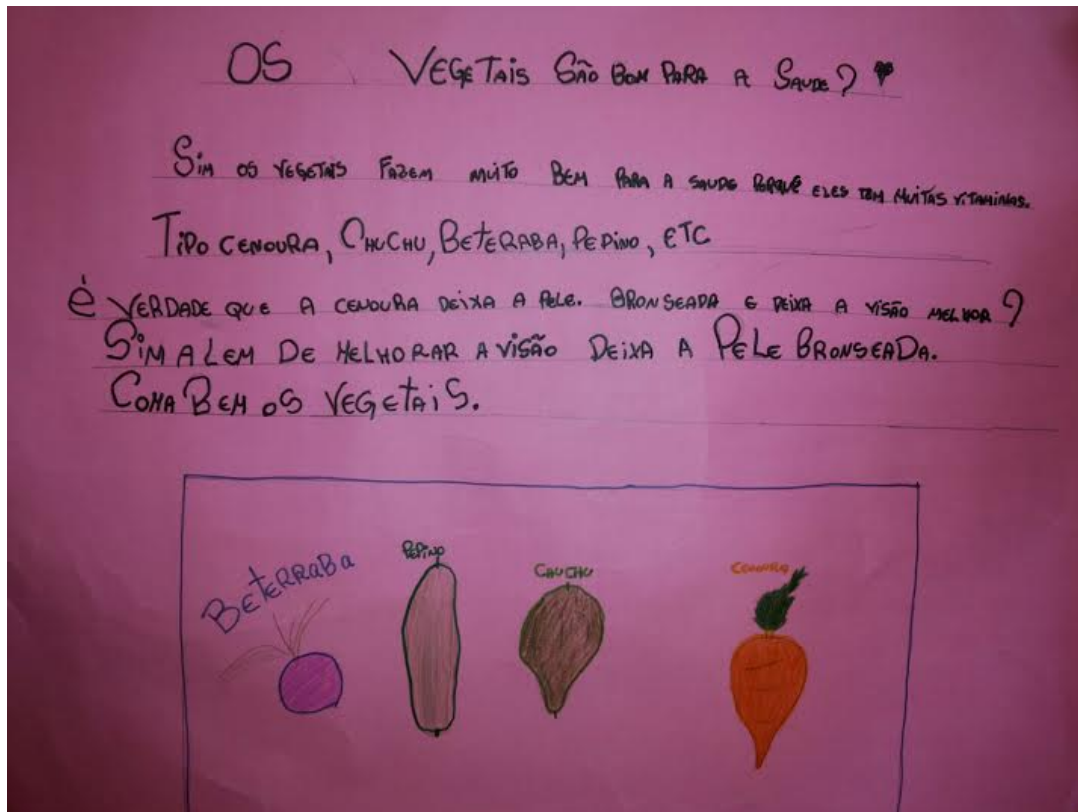 OS VEGETAIS SÃO BOM PARA A SAUDE?
SIM OS VEGETAIS FAZEM MUITO BEM PARA A SAUDE PORQUÊ ELES TEM MUITAS VITAMINAS.
TIPO CENOURA, CHUCHU, BETERABA, PEPINO, ETC
É VERDADE QUE A CENOURA DEIXA A PELE. BRONSEADA E DEIXA A VISÃO MELHOR?
SIM ALEM DE MELHORAR A VISÃO DEIXA A PELE BRONSEADA.
COMA BEM OS VEGETAIS.
BETERRABA
PEPINO
CHUCHU
CENOURA